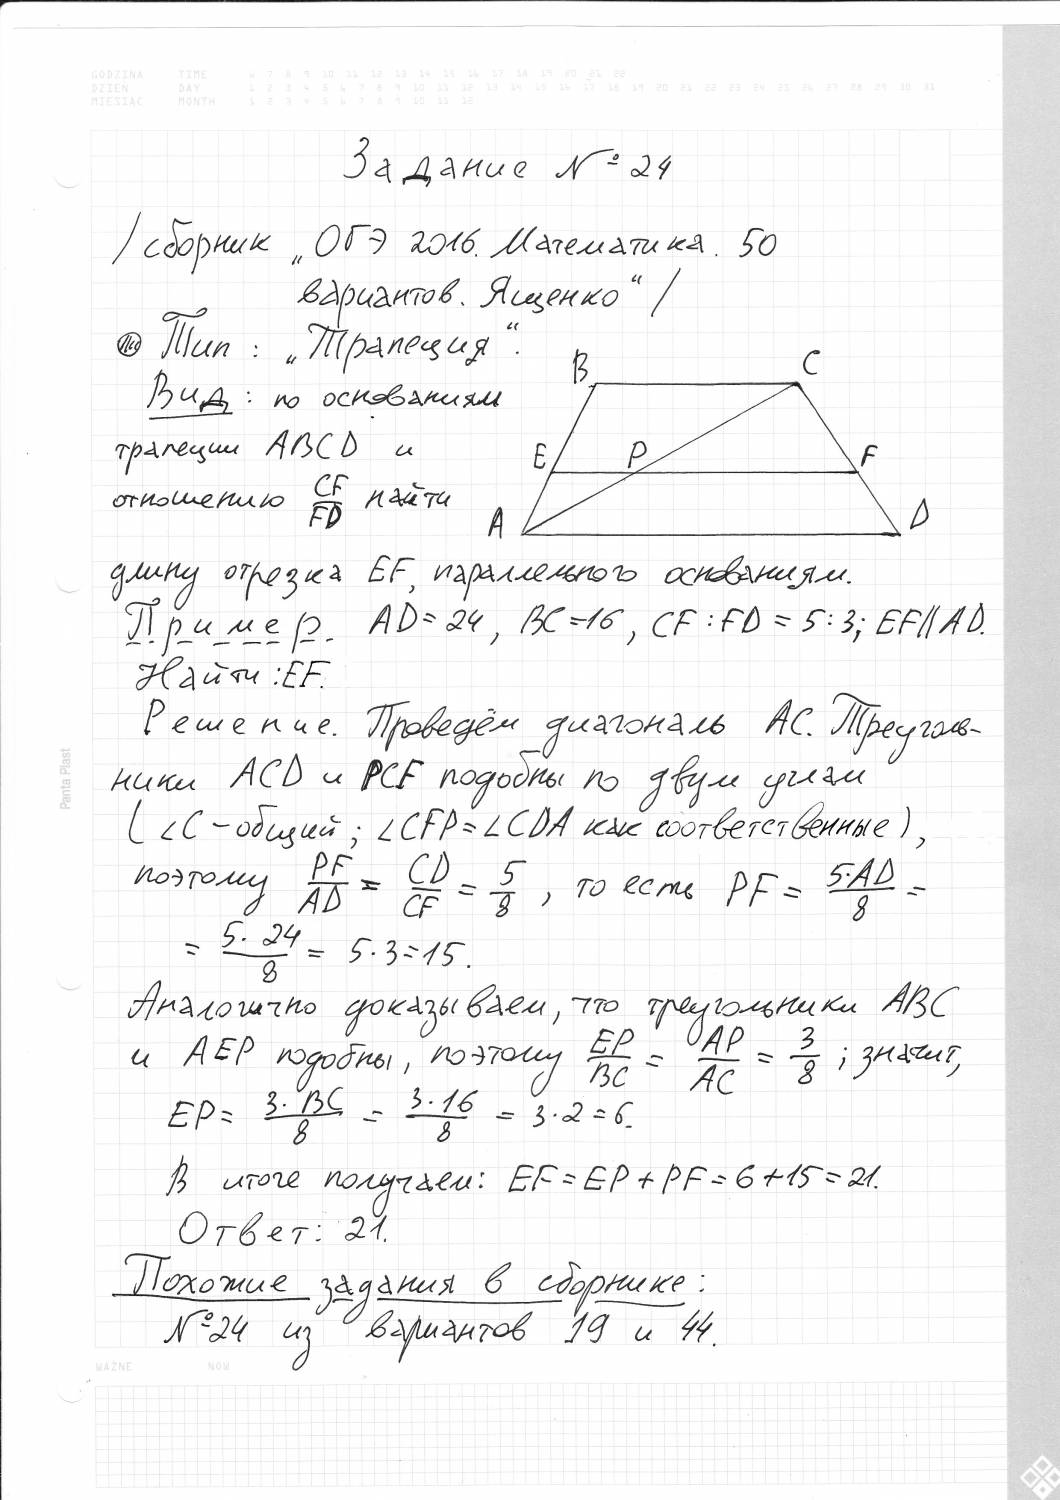 GODZINA TIME 6 7 8 9 10 11 12 13 14 15 16 17 18 19 20 21 22
DZIEŃ DAY 1 2 3 4 5 6 7 8 9 10 11 12 13 14 15 16 17 18 19 20 21 22 23 24 25 26 27 28 29 30 31
MIESIĄC MONTH 1 2 3 4 5 6 7 8 9 10 11 12
Задание №24
/сборник „ОГЭ 2016. Математика. 50
вариантов. Ященко“/
Тип: „Трапеция“.
Вид: по основаниям
трапеции ABCD и
отношению CF/FD найти
B C
E P F
A D
длину отрезка EF, параллельного основаниям.
Пример. AD=24, BC=16, CF:FD=5:3; EF∥AD.
Найти: EF.
Решение. Проведём диагональ AC. Треуголь-
ники ACD и PCF подобны по двум углам
(∠C-общий; ∠CFP=∠CDA как соответственные),
поэтому PF/AD = CD/CF = 5/8, то есть PF = 5·AD/8 =
= 5·24/8 = 5·3=15.
Аналогично доказываем, что треугольники ABC
и AEP подобны, поэтому EP/BC = AP/AC = 3/8; значит,
EP = 3·BC/8 = 3·16/8 = 3·2=6.
В итоге получаем: EF=EP+PF=6+15=21.
Ответ: 21.
Похожие задания в сборнике:
№24 из вариантов 19 и 44.
WAŻNE NOW
Panta Plast